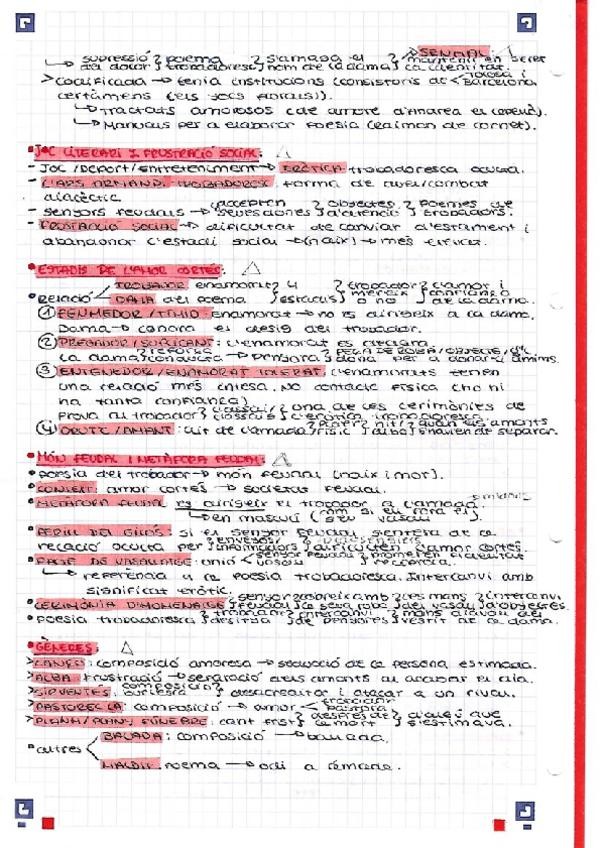 SENYAL:
↳ supressió del dolor } poema trobadoresc } s'amaga el nom de la dama } → mantenir en secret la identitat.
> Codificada → tenia institucions (consistoris de < Tolosa i Barcelona
certàmens (els jocs florals)).
↳ Tractats amorosos (de amore d'Andrea el Capellà).
↳ Manuals per a elaborar poesia (Raimon de Cornet).
• JOC LITERARI I FRUSTRACIÓ SOCIAL:
- Joc/deport/entreteniment → ERÒTICA trobadoresca oculta.
- L'ARS ARMAND. TROBADORESC: forma de duel/combat
dialèctic
- senyors feudals → accepten seves dones } objectes d'atenció } poemes de trobadors.
- FRUSTRACIÓ SOCIAL → dificultat de canviar d'estament i
abandonar l'estadi social → (naix) → més elevat.
• ESTADIS DE L'AMOR CORTÈS:
• relació < TROBADOR enamorat } 4 estadis } trobador mereix o no } l'amor i confiança de la dama.
DAMA del poema
① FENHEDOR/TÍMID: enamorat → no es dirigeix a la dama.
Dama → ignora el desig del trobador.
② PREGADOR/SUPLICANT: l'enamorat es declara.
La dama } refusa consulta → pensarà } PEÇA DE ROBA/OBJECTE/etc. dona per a donar ànims.
③ ENTENEDOR/ENAMORAT TOLERAT: l'enamorats tenen
una relació més intensa. No contacte físic (no hi
ha tanta confiança).
Prova al trobador } l'assaig/l'assais } una de les cerimònies de l'eròtica trobadoresca.
④ DRUTZ/AMANT: llit de l'amada } plaer físic } nit/alba } quan els amants s'havien de separar.
• MÓN FEUDAL I METÀFORA FEUDAL:
• poesia del trobador → món feudal (naix i mor).
• CONTEXT: amor cortès → societat feudal.
• METÀFORA FEUDAL: es dirigeix el trobador a l'amada
↳ en masculí (com si fora el seu vassall).
• PERILL DEL GILÓS: si el senyor feudal s'entera de la
relació oculta per } envejosos/informadors } lausengiers dificulten } l'amor cortès.
• PACTE DE VASSALLATGE: unió < senyor feudal vassall } prometien fidelitat recíproca.
↳ referència a la poesia trobadoresca. Intercanvi amb
significat eròtic.
• CERIMÒNIA D'HOMENATGE } senyor feudal } cobreix amb la seva roba } les mans del vassall } intercanvi d'objectes.
• poesia trobadoresca } trobador desitja } intercanvi de penyores } mans davall del vestit de la dama.
• GÈNERES:
> CANÇÓ: composició amorosa → seducció de la persona estimada.
> ALBA: frustració → separació dels amants al acabar el dia.
> SIRVENTÉS: composició satírica } desacreditar i atacar a un rival.
> PASTOREL·LA: composició → amor < trobador pastora
> PLANH/PLANY FÚNEBRE: cant trist } després de la mort } d'algú que s'estimava.
• altres < BALADA: composició → ballada.
MALDIT: poema → odi a l'amada.